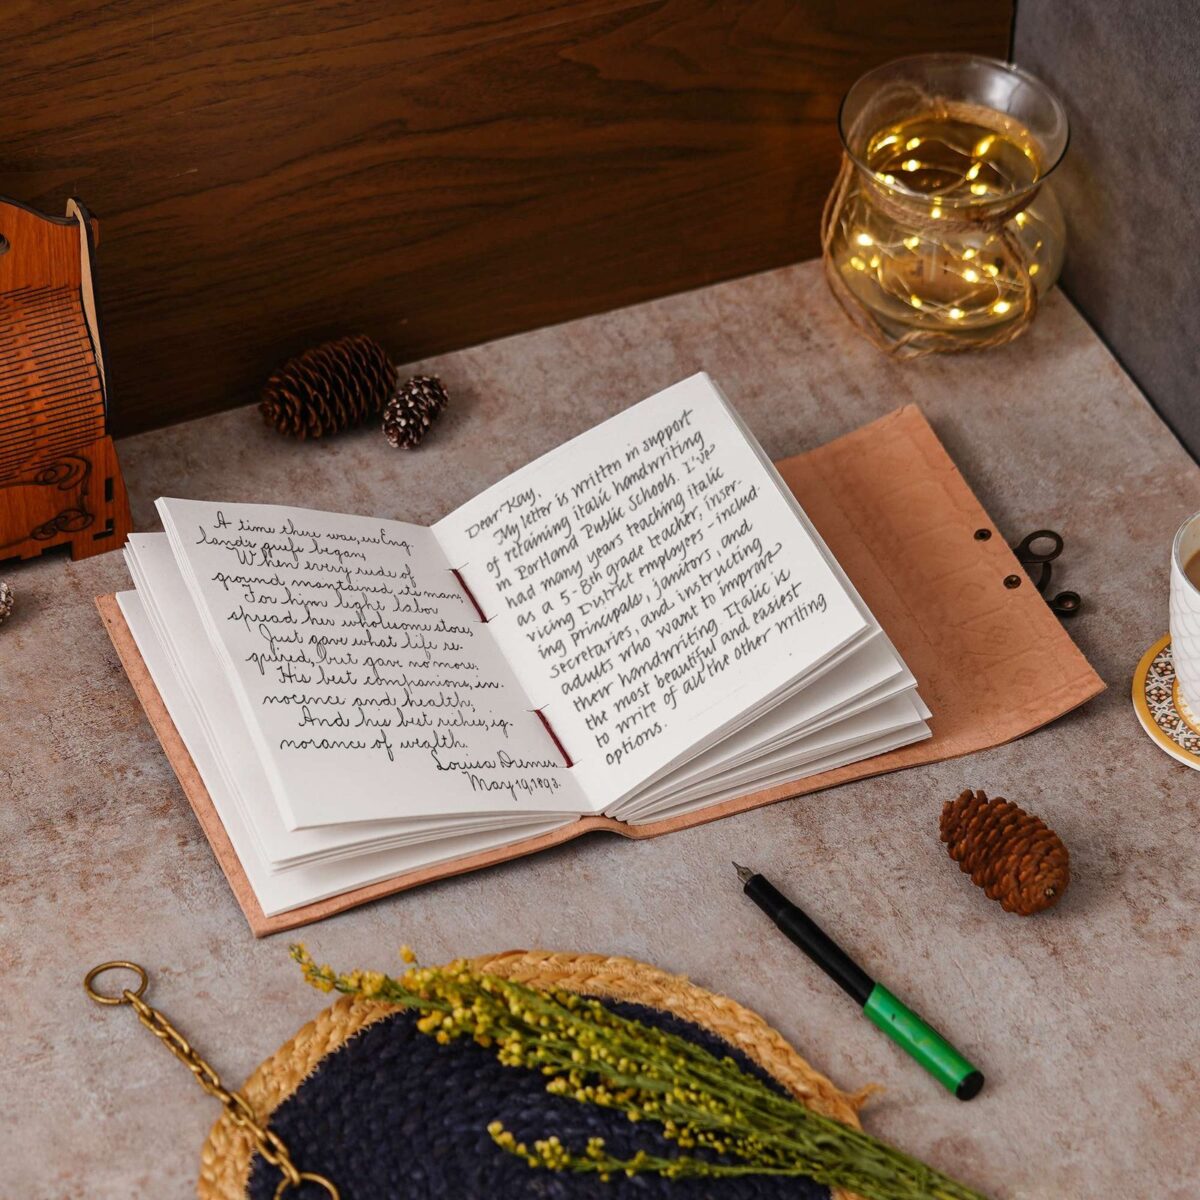 A time there was, ere Eng
lands griefs began,
When every rude of
ground mantained its man;
For him light labor
spread her wholesome store,
Just gave what life re-
quired, but gave no more.
His best companions, in-
nocence and health;
And his best riches, ig-
norance of wealth.
Louisa
May 19, 1893.
Dear Kay,
My letter is written in support
of retaining italic handwriting
in Portland Public Schools. I've
had many years teaching italic
as a 5-8th grade teacher, inser-
vicing District employees - includ-
ing principals, janitors, and
secretaries, and instructing
adults who want to improve
their handwriting. Italic is
the most beautiful and easiest
to write of all the other writing
options.